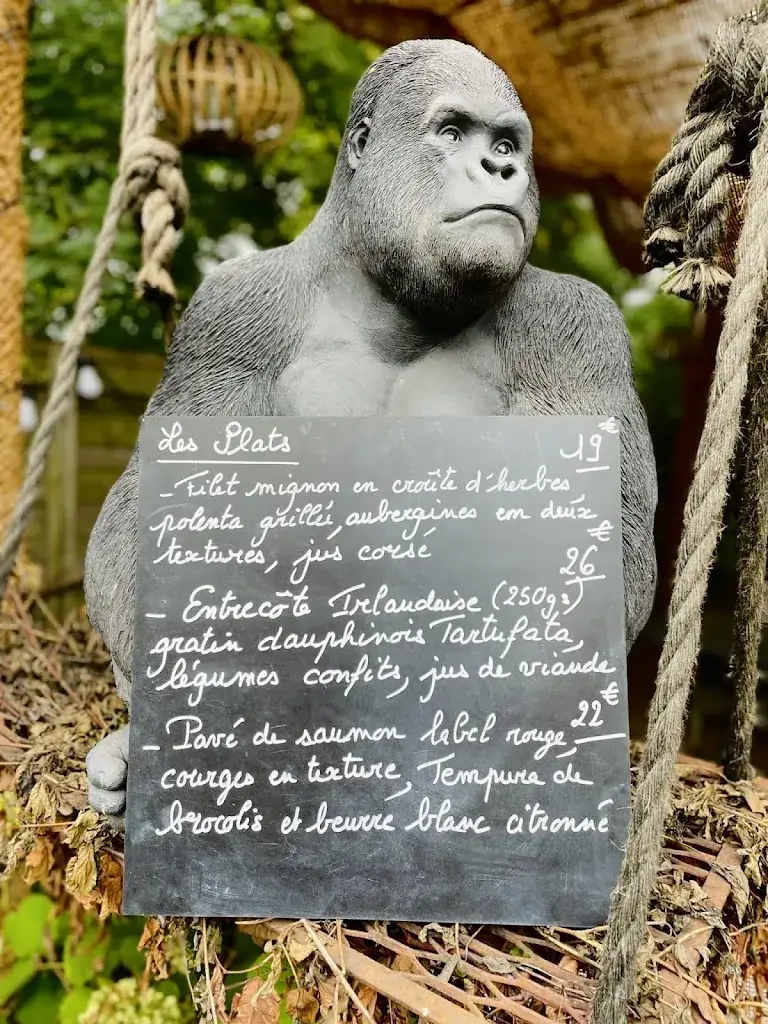 Les Plats 19€
- Filet mignon en croûte d'herbes
polenta grillée, aubergines en deux
textures, jus corsé
26€
- Entrecôte Irlandaise (250gs)
gratin dauphinois Tartufata,
légumes confits, jus de viande
- Pavé de saumon label rouge, 22€
courges en texture, Tempura de
brocolis et beurre blanc citronné